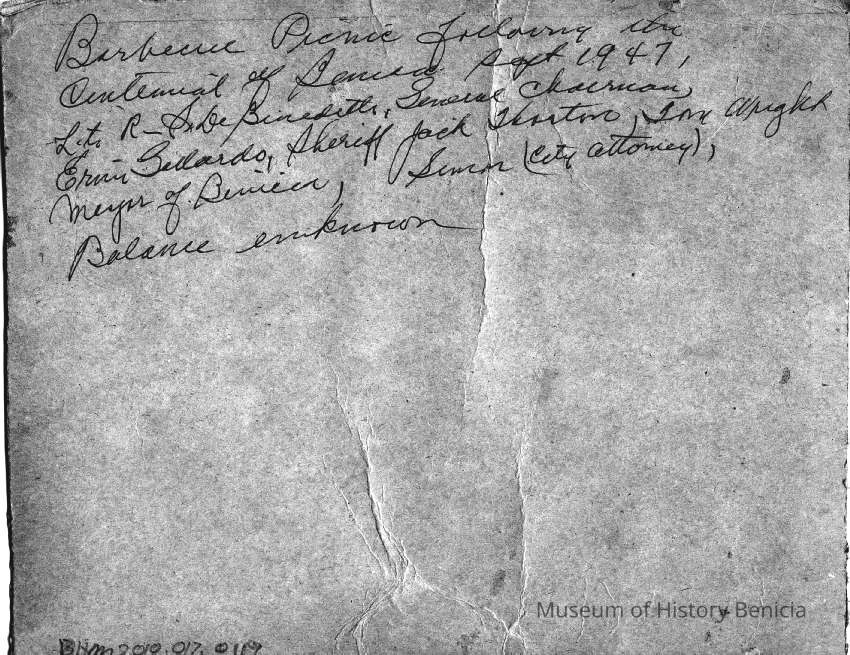 Barbecue Picnic following the
Centennial of Benicia Sept 1947,
L.to R- S. De Benedetti, General Chairman,
Ermi Gedardo, Sheriff Jack Thorton, Tom Wright
Mayor of Benicia, (City attorney),
Balance unknown
Museum of History Benicia
BHM2010.017.0119